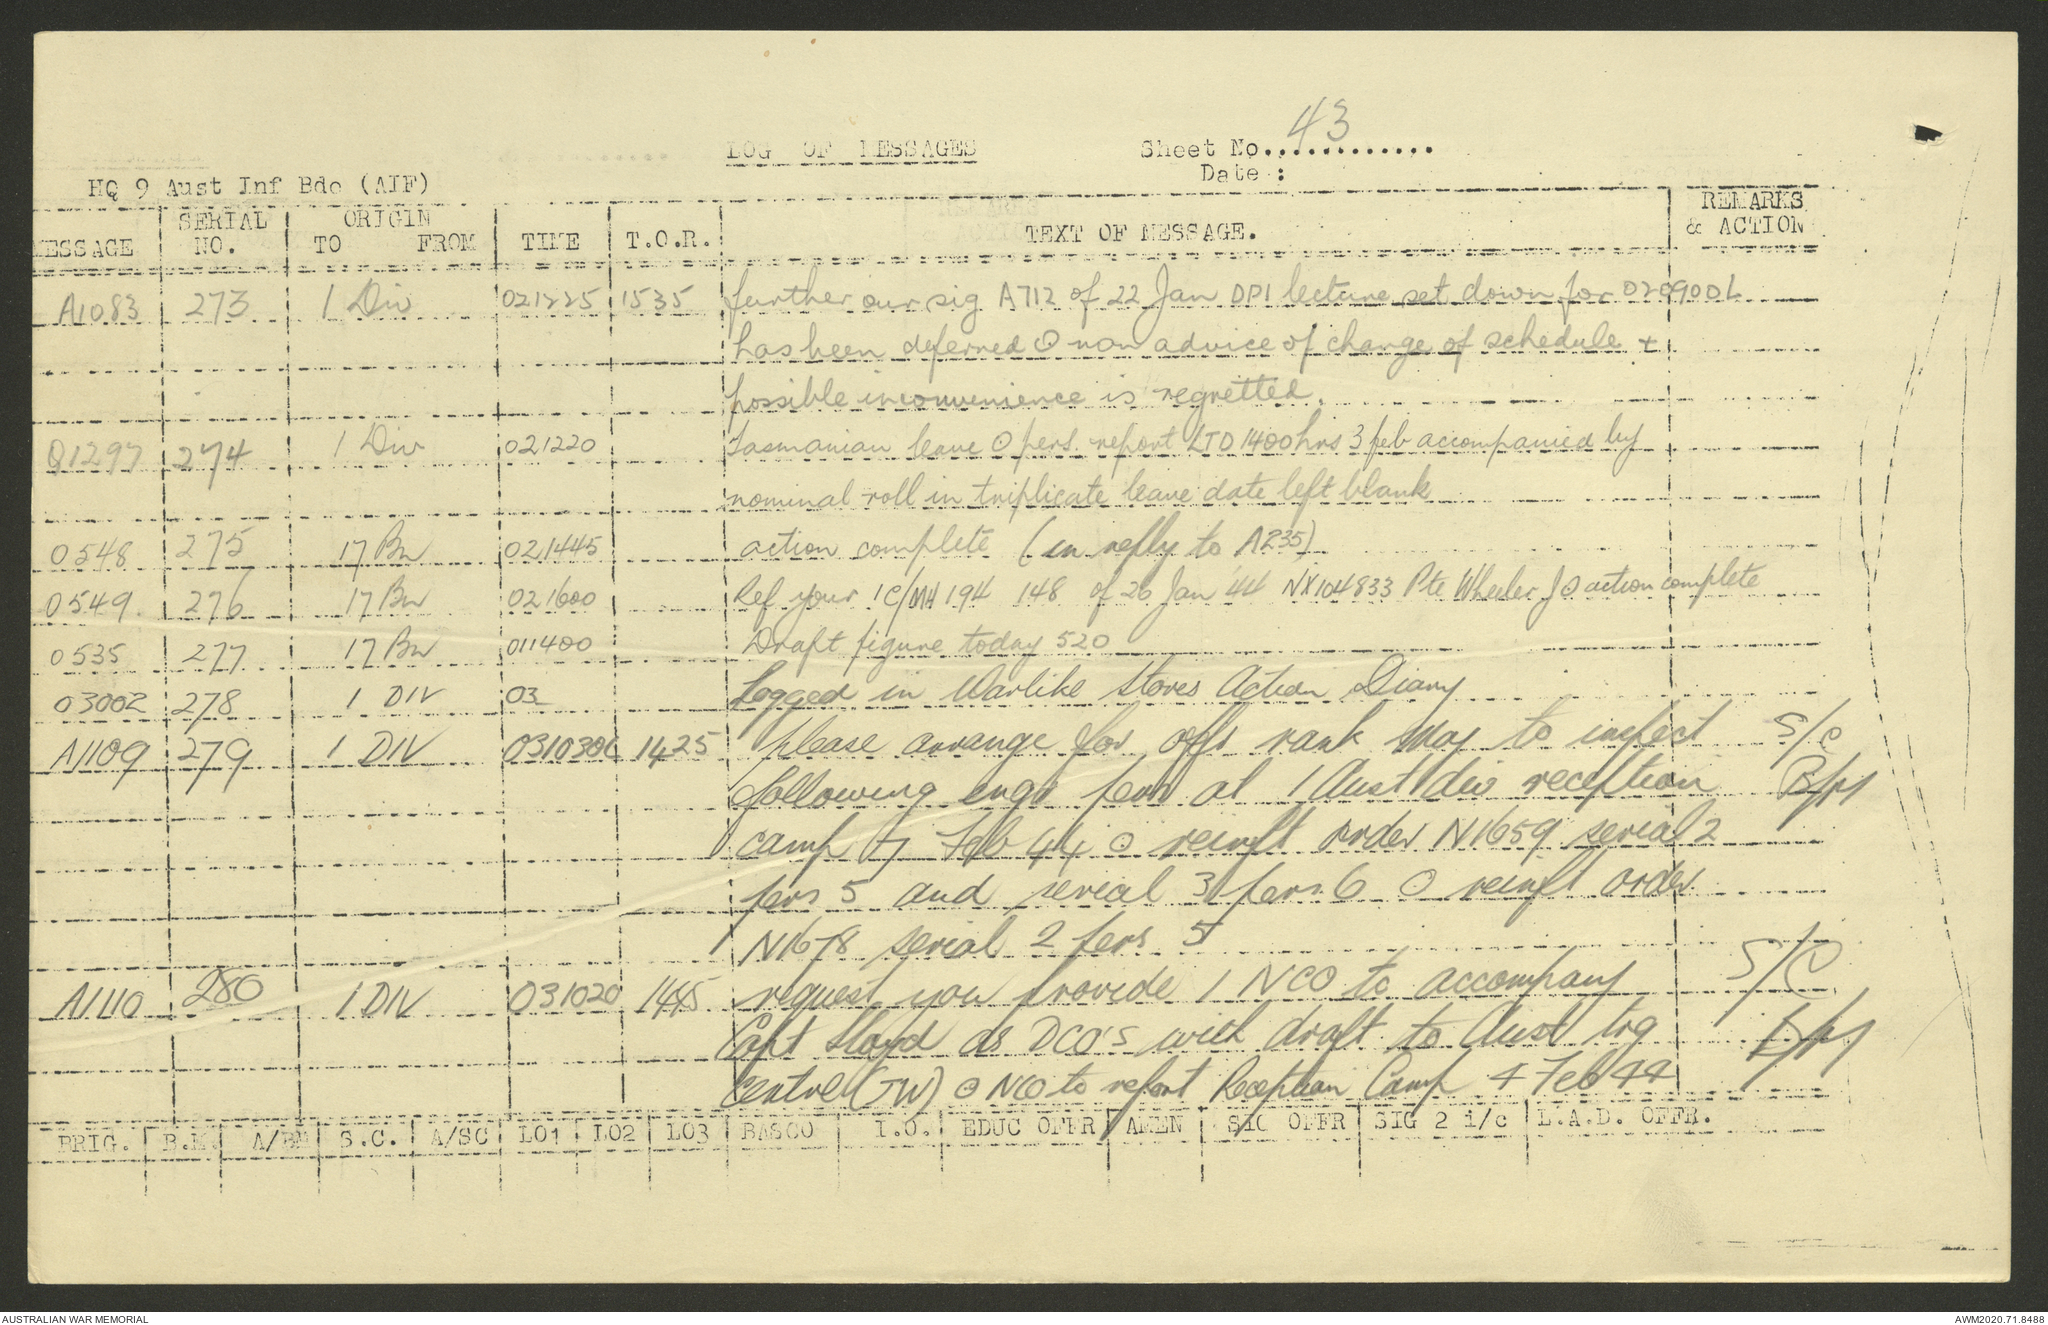 LOG OF MESSAGES Sheet No............. 43
Date :
HQ 9 Aust Inf Bde (AIF)
MESSAGE SERIAL NO. ORIGIN TO FROM TIME T.O.R. TEXT OF MESSAGE. REMARKS & ACTION
A1083 273 1 Div 021225 1535 further our sig A712 of 22 Jan DPI lecture set down for 020900L
has been deferred ⊙ non advice of change of schedule +
possible inconvenience is regretted.
Q1297 274 1 Div 021220 Tasmanian leave ⊙ pers. report LTD 1400 hrs 3 feb accompanied by
nominal roll in triplicate leave date left blank
0548 275 17 Bn 021445 action complete (in reply to A235)
0549 276 17 Bn 021600 Ref your 1C/MH194 148 of 26 Jan '44 NX104833 Pte Wheeler J ⊙ action complete
0535 277 17 Bn 011400 Draft figure today 520
03002 278 1 DIV 03 Logged in Warlike Stores Action Diary
A1109 279 1 DIV 031030 1425 please arrange for offr rank Maj to inspect S/C
following engr pers at 1 Aust div reception
camp 7 Feb 44 ⊙ reinft order N1659 serial 2
pers 5 and serial 3 pers 6 ⊙ reinft order
N1678 serial 2 pers 5
A1110 280 1 DIV 031020 1445 request you provide 1 NCO to accompany S/C
Capt Lloyd as DCO'S with draft to Aust trg
Centre (JW) ⊙ NCO to report Reception Camp 4 Feb 44
BRIG. B.M. A/BM S.C. A/SC LO1 LO2 LO3 BASCO I.O. EDUC OFFR AMEN SIG OFFR SIG 2 i/c L.A.D. OFFR.
AUSTRALIAN WAR MEMORIAL AWM2020.71.8488